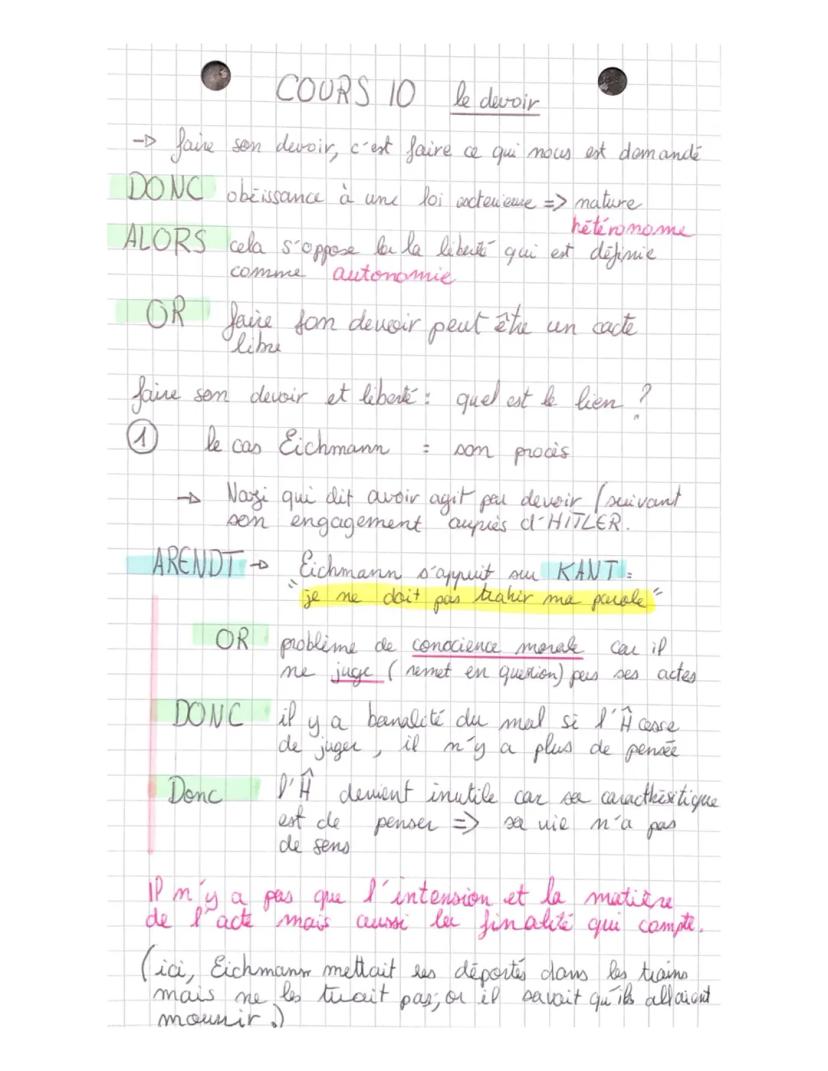 COURS 10 le devoir
→ faire son devoir, c'est faire ce qui nous est demandé
DONC obéissance à une loi exterieure => nature
hétéronome
ALORS cela s'oppose à la liberté qui est définie
comme autonomie
OR faire son devoir peut être un acte
libre
faire son devoir et liberté : quel est le lien ?
① le cas Eichmann = son procès
→ Nazi qui dit avoir agit par devoir (suivant
son engagement auprès d'HITLER.
ARENDT → Eichmann s'appuit sur KANT :
"je ne doit pas trahir ma parole"
OR problème de conscience morale car il
ne juge (remet en question) pas ses actes
DONC il y a banalité du mal si l'Ĥ cesse
de juger, il n'y a plus de pensée
Donc l'Ĥ devient inutile car sa caractéristique
est de penser => sa vie n'a pas
de sens
Il n'y a pas que l'intension et la matière
de l'acte mais aussi la finalité qui compte.
(ici, Eichmann mettait les déportés dans les trains
mais ne les tuait pas, or il savait qu'ils allaient
mourir.)